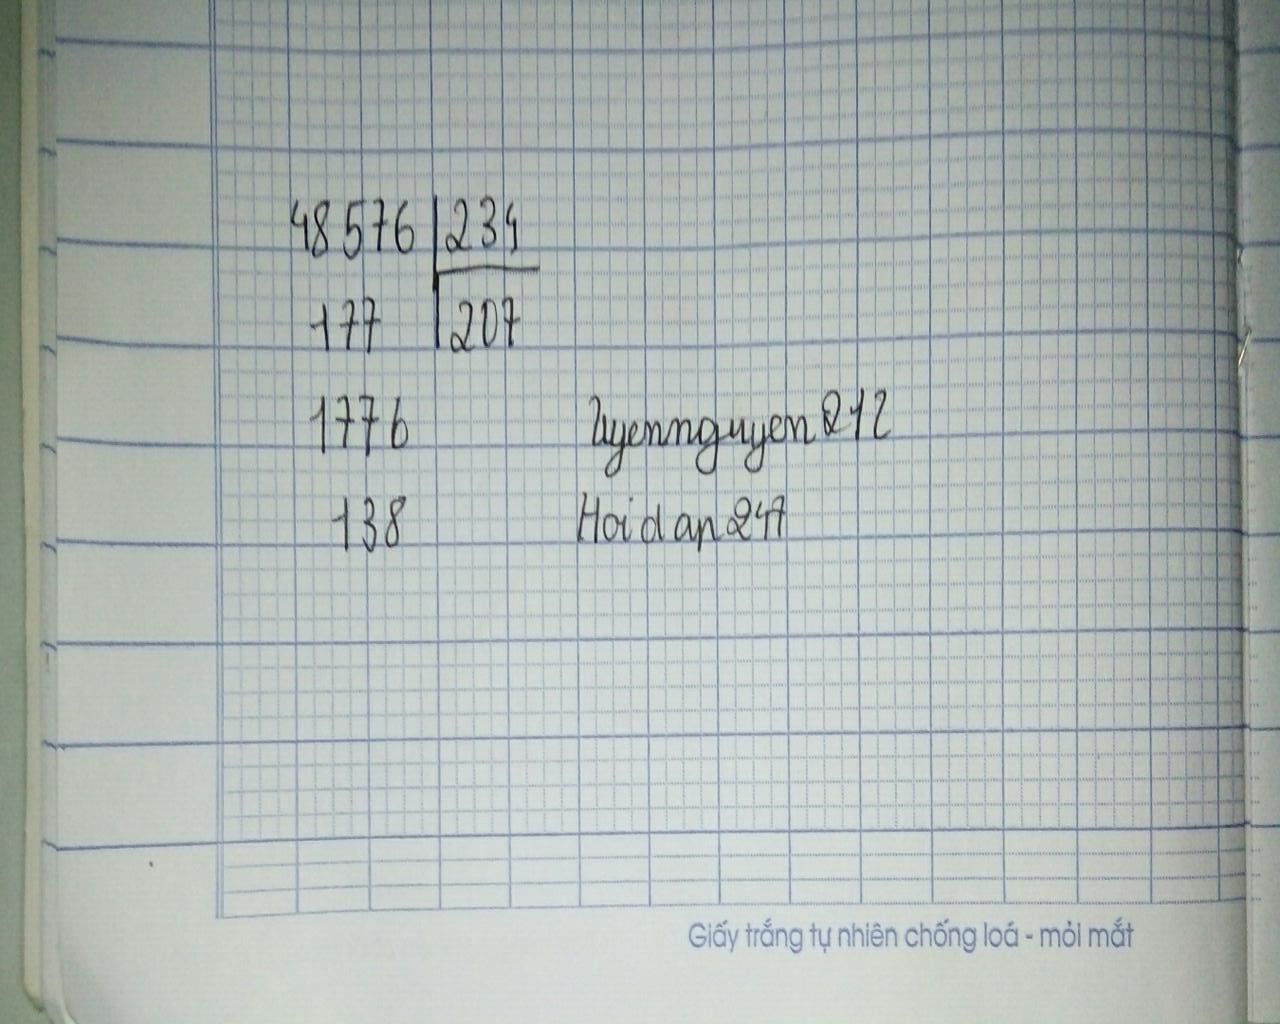 48576 234
177 207
1776
138
Uyennguyen212
Hoidap247
Giấy trắng tự nhiên chống loá - mỏi mắt